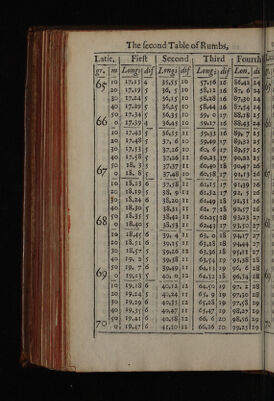 The second Table of Rumbs,
Latit. First Second Third Fourth
gr. m Longi dif Longi dif Longi dif Lon, di
65 10 17,15 4 35,55 10 57,16 16 86,42 24
20 17,19 5 36, 5 10 58,12 16 87, 6 24
30 17,24 5 36,15 10 58,28 16 87,30 24
40 17,29 5 36,25 10 58,44 16 87,54 24
50 17,34 5 36,35 10 59, 0 17 88,18 25
66 0 17,39 4 36,45 10 59,17 88,43 24
10 17,43 5 36,55 11 59,33 16 89, 7 25
20 17,48 5 37, 6 10 59,49 17 89,32 25
30 17,53 5 37,16 10 60, 6 17 89,57 25
40 17,58 5 37,26 11 60,23 17 90,22 25
50 18, 3 5 37,37 11 60,40 18 90,47 26
67 0 18, 8 5 37,48 10 60,58 17 91,13 26
10 18,13 6 37,58 11 61,15 17 91,39 26
20 18,19 5 38, 9 11 61,32 17 92, 5 26
30 18,24 6 38,20 11 61,49 18 92,31 26
40 18,30 5 38,31 11 62, 7 18 92,57 26
50 18,35 5 38,42 11 62,25 18 93,23 27
68 0 18,40 5 38,53 11 62,43 17 93,50 27
10 18,45 6 39, 4 11 63, 0 18 94,17 27
20 18,51 6 39,15 11 63,18 18 94,44 27
30 18,57 5 39,26 12 63,36 18 95,11 27
40 19, 2 5 39,38 11 63,54 19 95,38 28
50 19, 7 6 39,49 11 64,13 19 96, 6 28
69 0 19,13 5 40, 0 12 64,32 18 96,34 28
10 19,18 6 40,12 12 64,50 19 97, 2 28
20 19,24 5 40,24 11 65, 9 19 97,30 28
30 19,29 6 40,35 11 65,28 19 97,58 29
40 19,35 6 40,46 12 65,47 19 98,27 29
50 19,41 6 40,58 12 66, 6 20 98,56 29
70 0 19,47 6 41,10 11 66,26 20 99,25 29